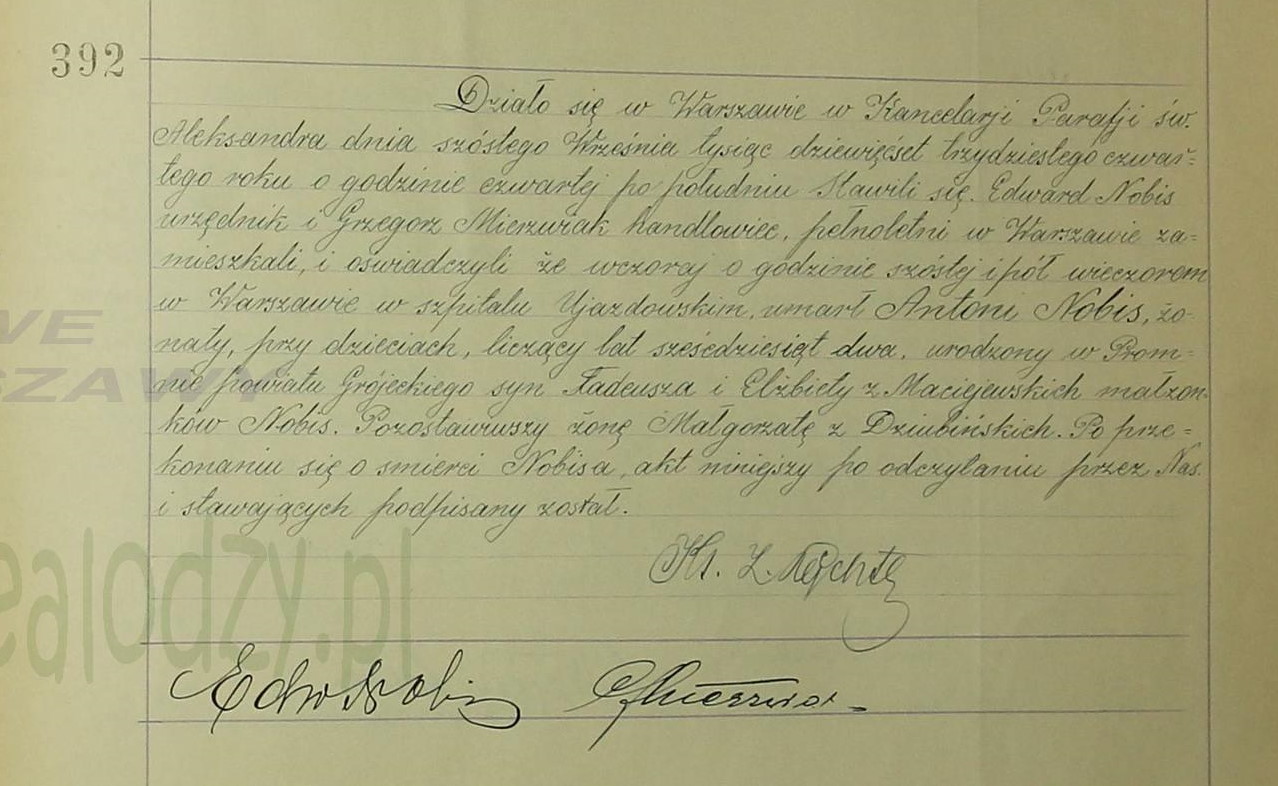 392
Działo się w Warszawie w Kancelarji Parafji św.
Aleksandra dnia szóstego Września tysiąc dziewięćset trzydziestego czwar=
tego roku o godzinie czwartej po południu Stawili się. Edward Nobis
urzędnik i Grzegorz Mierzwiak handlowiec, pełnoletni w Warszawie za=
mieszkali, i oświadczyli że wczoraj o godzinie szóstej i pół wieczorem
w Warszawie w szpitalu Ujazdowskim, umarł Antoni Nobis, żo-
naty, przy dzieciach, liczący lat sześćdziesiąt dwa, urodzony w Prom=
nie powiatu Grójeckiego syn Tadeusza i Elżbiety z Maciejewskich małżon-
ków Nobis. Pozostawiwszy żonę Małgorzatę z Dziubińskich. Po prze=
konaniu się o śmierci Nobisa, akt niniejszy po odczytaniu przez Nas
i stawających podpisany został.
Ks. Z.
Edw Nobis
WE
SZAWY
ealodzy.pl